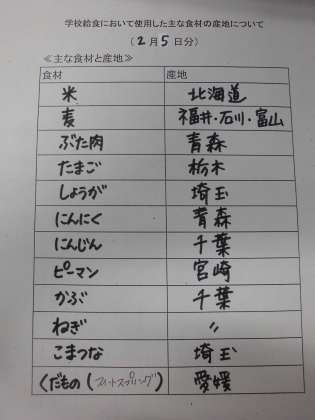 学校給食において使用した主な食材の産地について
(2月5日分)
≪主な食材と産地≫
食材 産地
米 北海道
麦 福井・石川・富山
ぶた肉 青森
たまご 栃木
しょうが 埼玉
にんにく 青森
にんじん 千葉
ピーマン 宮崎
かぶ 千葉
ねぎ 〃
こまつな 埼玉
くだもの(スイートスプリング) 愛媛